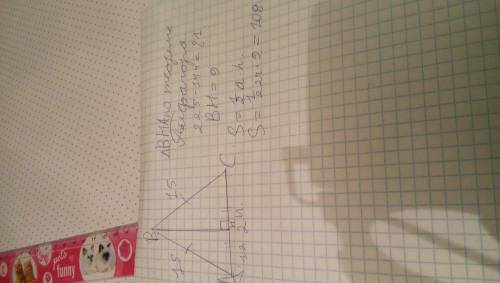 ΔBHA по теореме
Пифагора
225-144=81
BH=9
S=½ah
S=½24·9=108
B
15
15
C
H
A
12
24
pets
funny